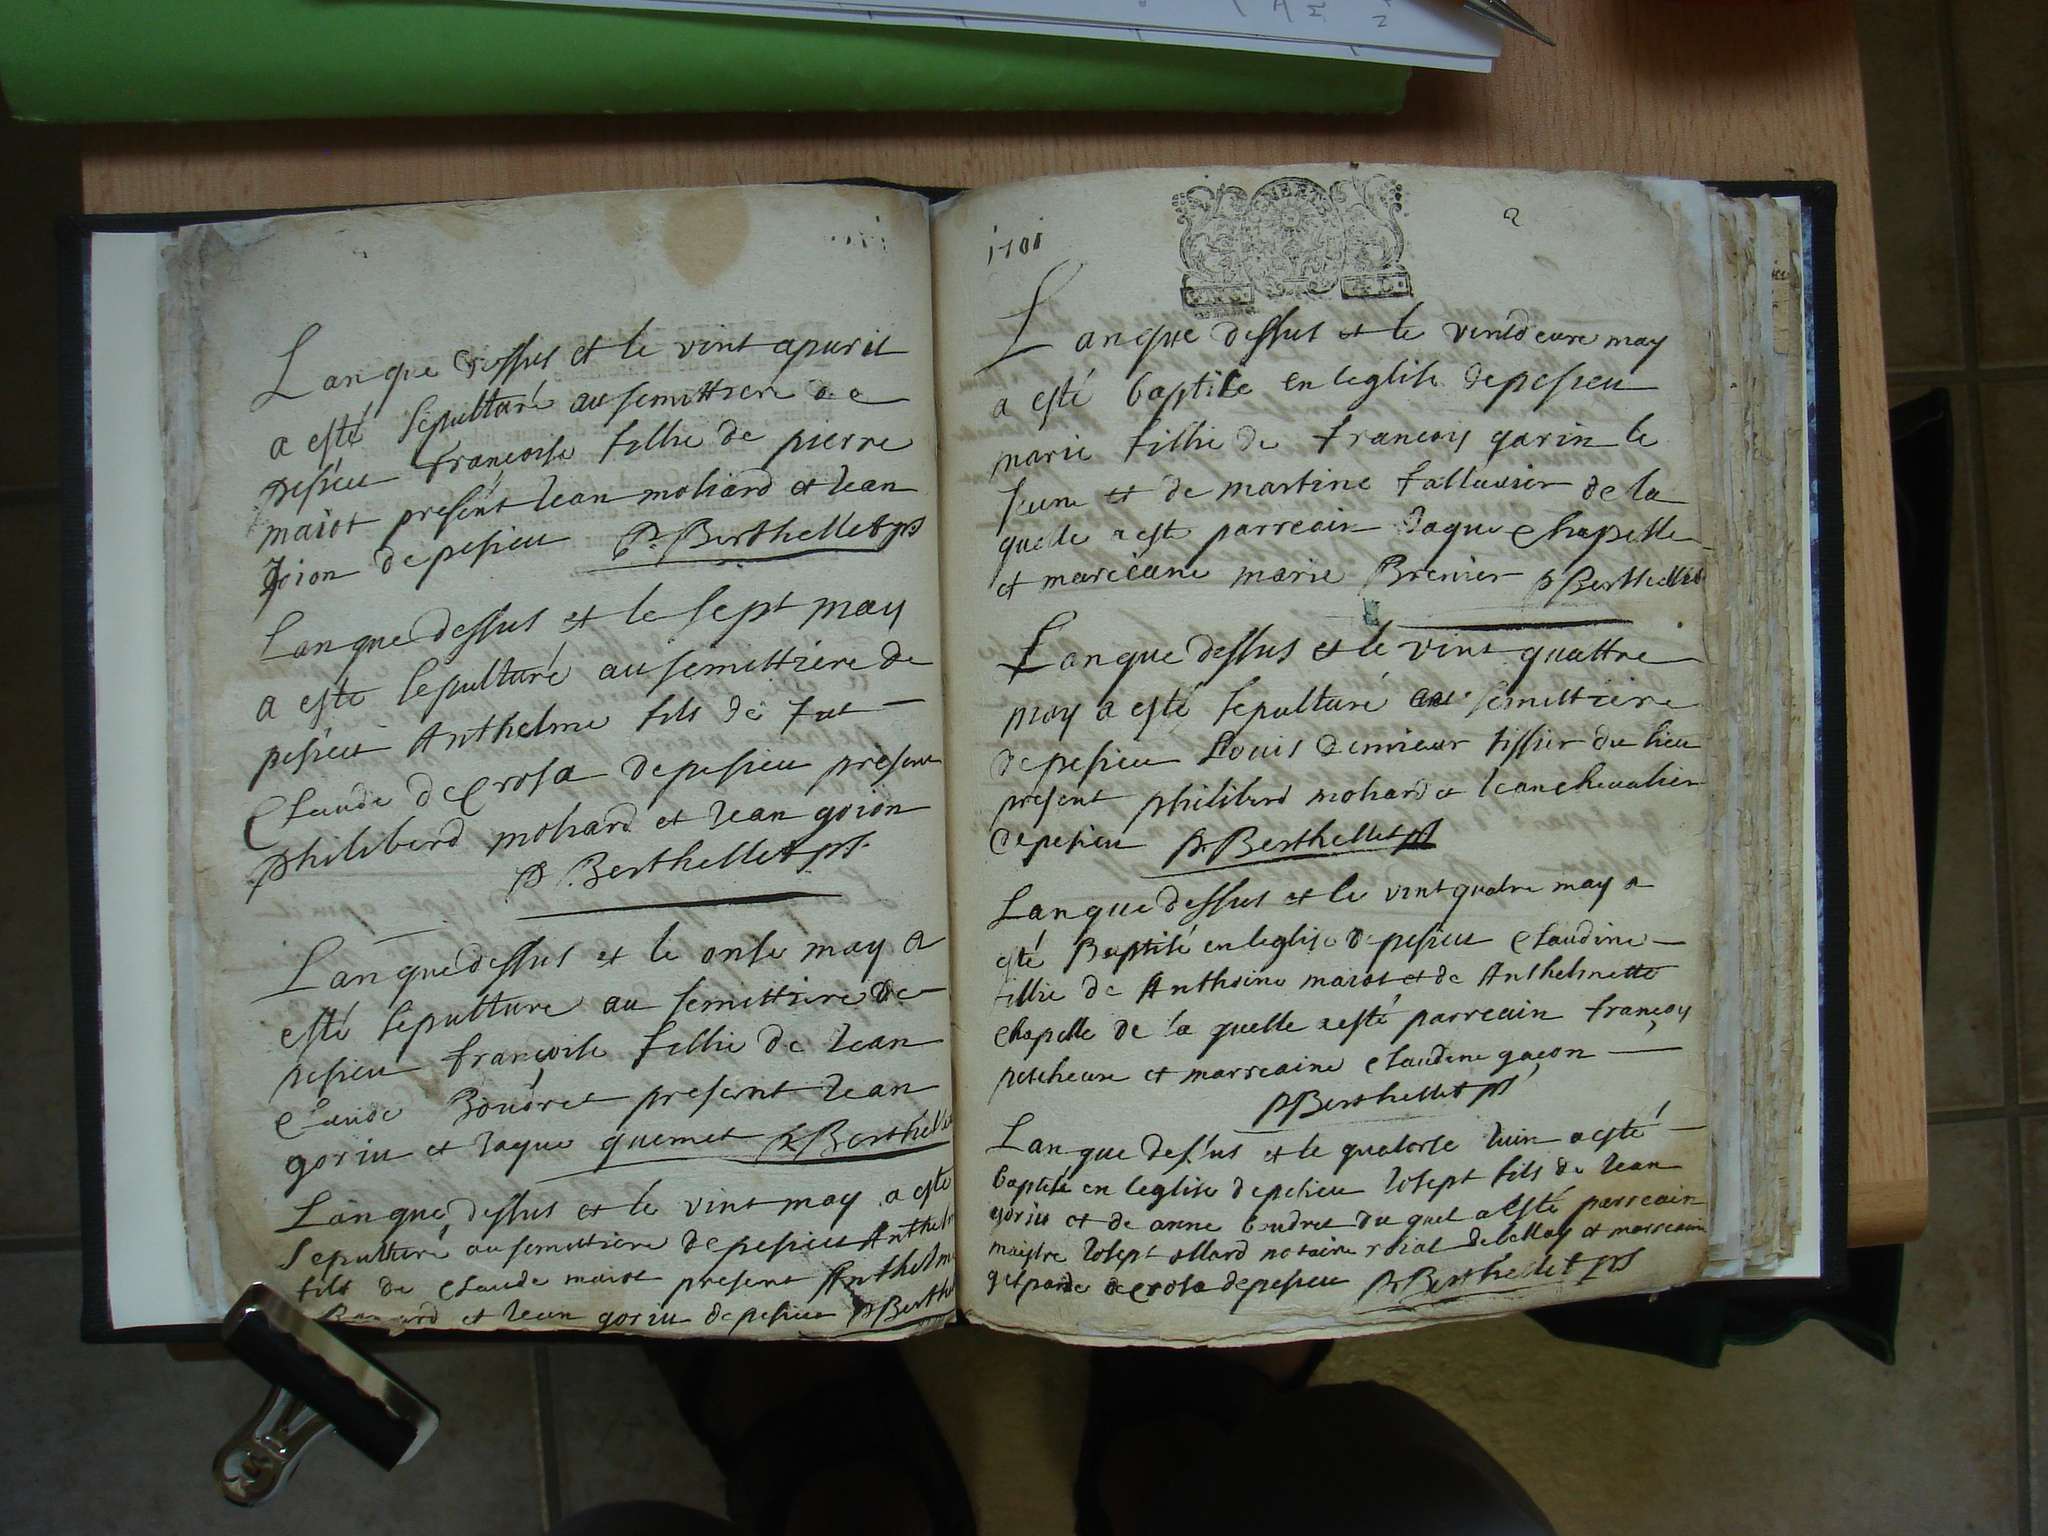 Lan que dessus et le vint apuril
a esté sepulturé au semittiere de
pesieu françoise fillie de pierre
maiot present Jean mohard et Jean
goion de pesieu P. Berthellet ptr
Lan que dessus et le sept may
a este sepulturé au semittiere de
pesieu Anthelme fils de fut
Claude decrosa de pesieu present
philiberd mohard et Jean goion
P. Berthellet ptr
Lan que dessus et le onse may a
esté sepulturé au semittiere de
pesieu françoise fillie de Jean
Claude Boudret present Jean
goriu et Jaque quemet P Berthellet
Lan que dessus et le vint may a esté
sepulturé au semittiere de pesieu Anthelme
fils de Claude maiot present Anthelme
et Jean goriu de pesieu P Berthe
1701
2
Lan que dessus et le vintdeuxe may
a esté baptise en leglise de pesieu
marie fillie de françois garin le
jeune et de martine falluvier de la
quelle a esté parreain Jaque Chapelle
et marreaine marie Brenier P Berthellet
Lan que dessus et le vint quattre
may a esté sepulturé au semittiere
de pesieu Louis demieur tissier du lieu
present philiberd mohard et Jean Chevalier
de pesieu P Berthellet ptr
Lan que dessus et le vint quatre may a
esté Baptisé en leglise de pesieu Claudine
fillie de Anthoine maiot et de Anthelmette
Chapelle de la quelle a esté parreain françoy
petcheure et marreaine Claudine gaeon
P Berthellet ptr
Lan que dessus et le quatorse Juin a esté
baptisé en leglise de pesieu Josept fils de Jean
goriu et de anne boudret du quel a esté parreain
maistre Josept allard notaire roial de bellay et marreaine
decrosa de pesieu P Berthellet ptr